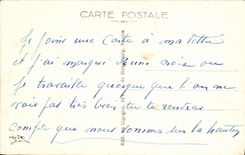 CARTE POSTALE
Je joins une carte à ma lettre
et j'ai marqué d'une croix où
je travaille quoique que l'on ne
vois pas très bien tu te rendras
compte que nous sommes sur la hauteur